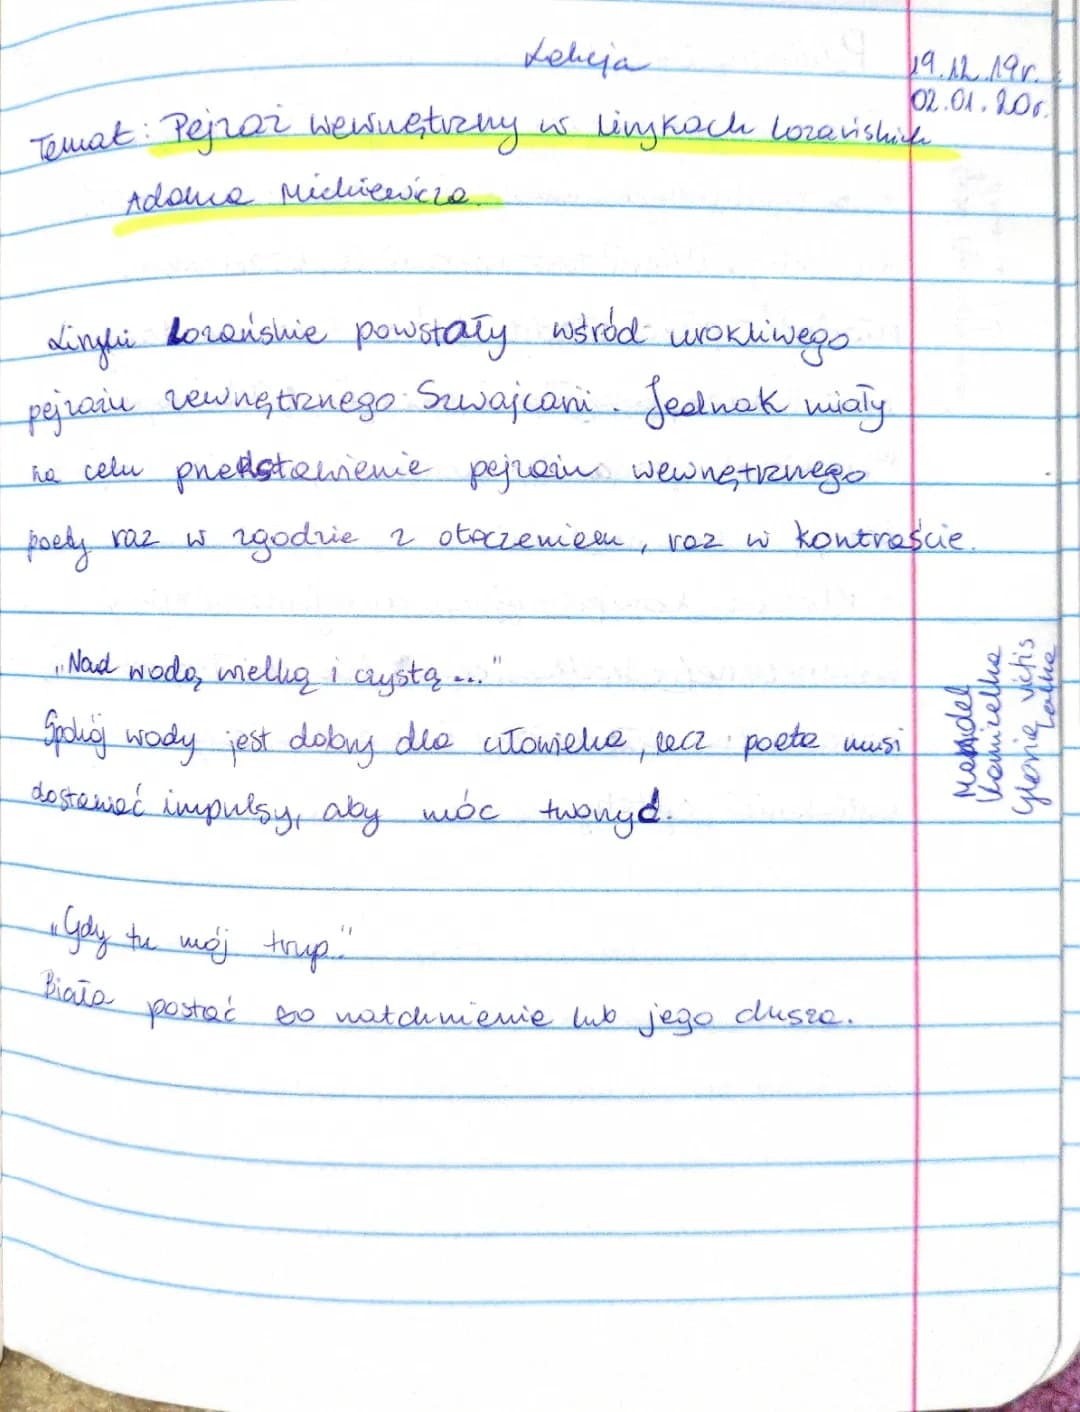 Lekcja
19.12.19r.
02.01.20r.
Temat: Pejzaż wewnętrzny w lirykach lozańskich
Adama Mickiewicza.
Liryki lozańskie powstały wśród urokliwego
pejzażu zewnętrznego Szwajcarii. Jednak miały
na celu przedstawienie pejzażu wewnętrznego
poety raz w zgodzie z otoczeniem, raz w kontraście.
„Nad wodą wielką i czystą..."
Spokój wody jest dobry dla człowieka, lecz poeta musi
dostawać impulsy, aby móc tworzyć.
„Gdy tu mój trup."
Biała postać to natchnienie lub jego dusza.
Mendel
Kamizelka
Gloria victis
Lalka